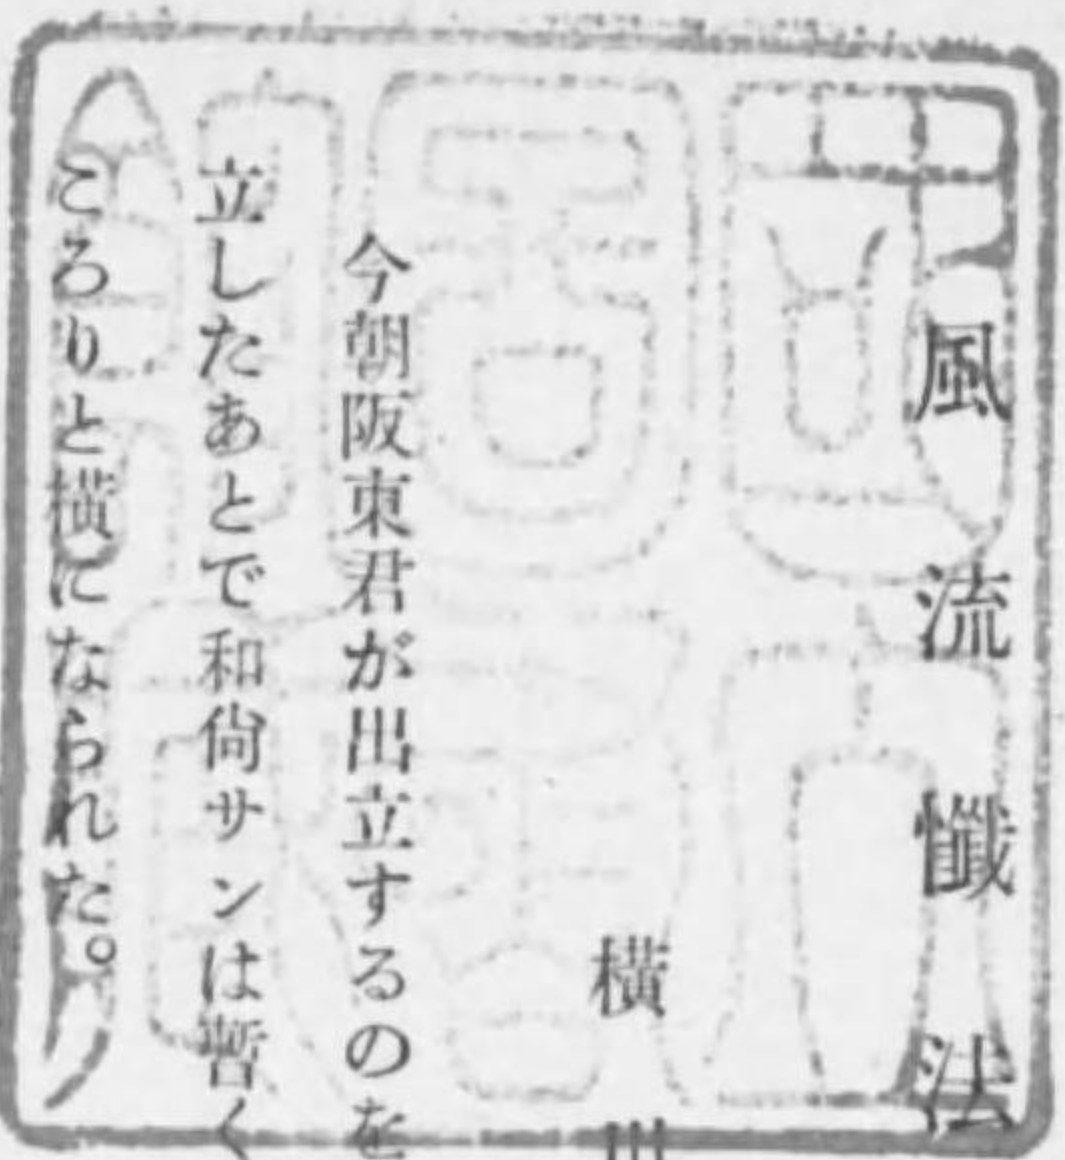 風流懺法
横川
今朝阪東君が出立するのを
立したあとで和尙サンは暫く
ころりと横になられた。